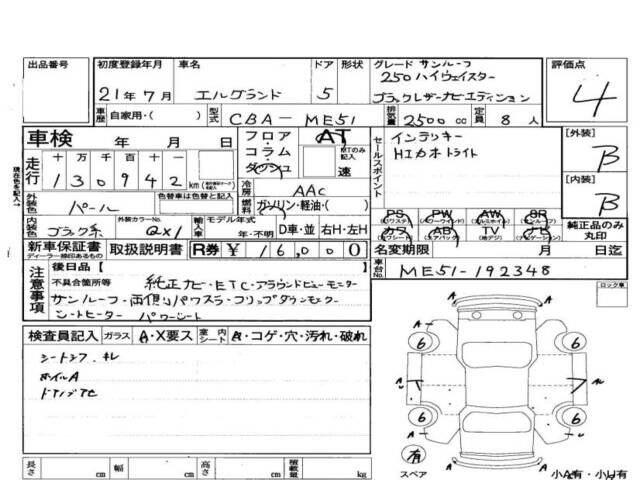 出品番号 初度登録年月 車名 ドア 形状 グレード サンルーフ 評価点
21年7月 エルグランド 5 250 ハイウェイスター
ブラックレザーナビエディション 4
車歴 自家用・( ) 型式 CBA-ME51 排気量 2500cc 定員 8人
車検 年 月 日 フロア・コラム・ダッシュ AT MTのみ記入 速
セールスポイント インテリキー
HIDオートライト
[外装] B
[内装] B
走行 十 万 千 百 十 一
130942 km
冷房 AAC
燃料 ガソリン・軽油・( )
外装色 パール 色替車は色替と記入
内装色 ブラック系 外装カラーNo. QX1 輸入車 モデル年式 年・不明 D車・並 右H・左H
PS PW AW SR
カワ AB TV ナビ
純正品のみ丸印
新車保証書 ディーラー印あるもの 取扱説明書 R券 ¥16,000 名変期限 月 日迄
車台No. ME51-192348
注意事項 後日品[ ]
不具合箇所等 純正ナビ・ETC・アラウンドビューモニター
サンルーフ・両側パワスラ・フリップダウンモニター
シートヒーター パワーシート
ロック車
検査員記入 ガラス A・X要ス 室内シート A・コゲ・穴・汚れ・破れ
ホイルA
6 6
6 6
有
スペア
長さ cm 幅 cm 高さ cm 積載量 kg
小A有・小U有
現在色を記入→